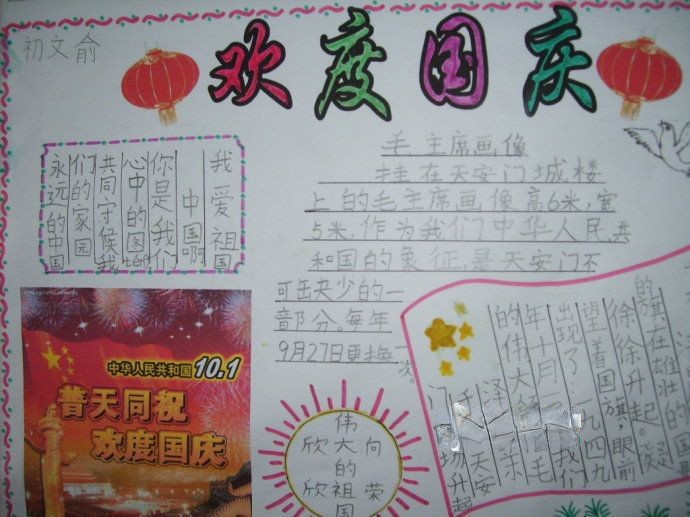 初文俞
欢度国庆
我爱祖国
中国啊
你是我们
心中的图téng
共同守候我
们的家园
永远的中国
毛主席画像
挂在天安门城楼
上的毛主席画像高6米,宽
5米,作为我们中华人民共
和国的象征,是天安门不
可缺少的一
部分。每年
9月27日更换一次。
中华人民共和国10.1
普天同祝
欢度国庆
伟大的祖国
欣欣向荣
的旗在雄壮的国
徐徐升起。凝
望着国旗,眼前
出现了:一九四九
年十月一我们
的伟大毛
泽
天安
门场升起